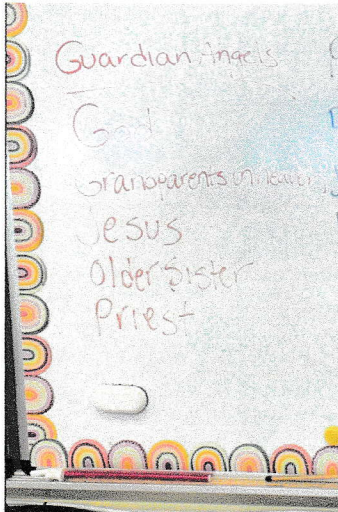 Guardian Angels
God
Granparents in heaven
Jesus
Older Sister
Priest